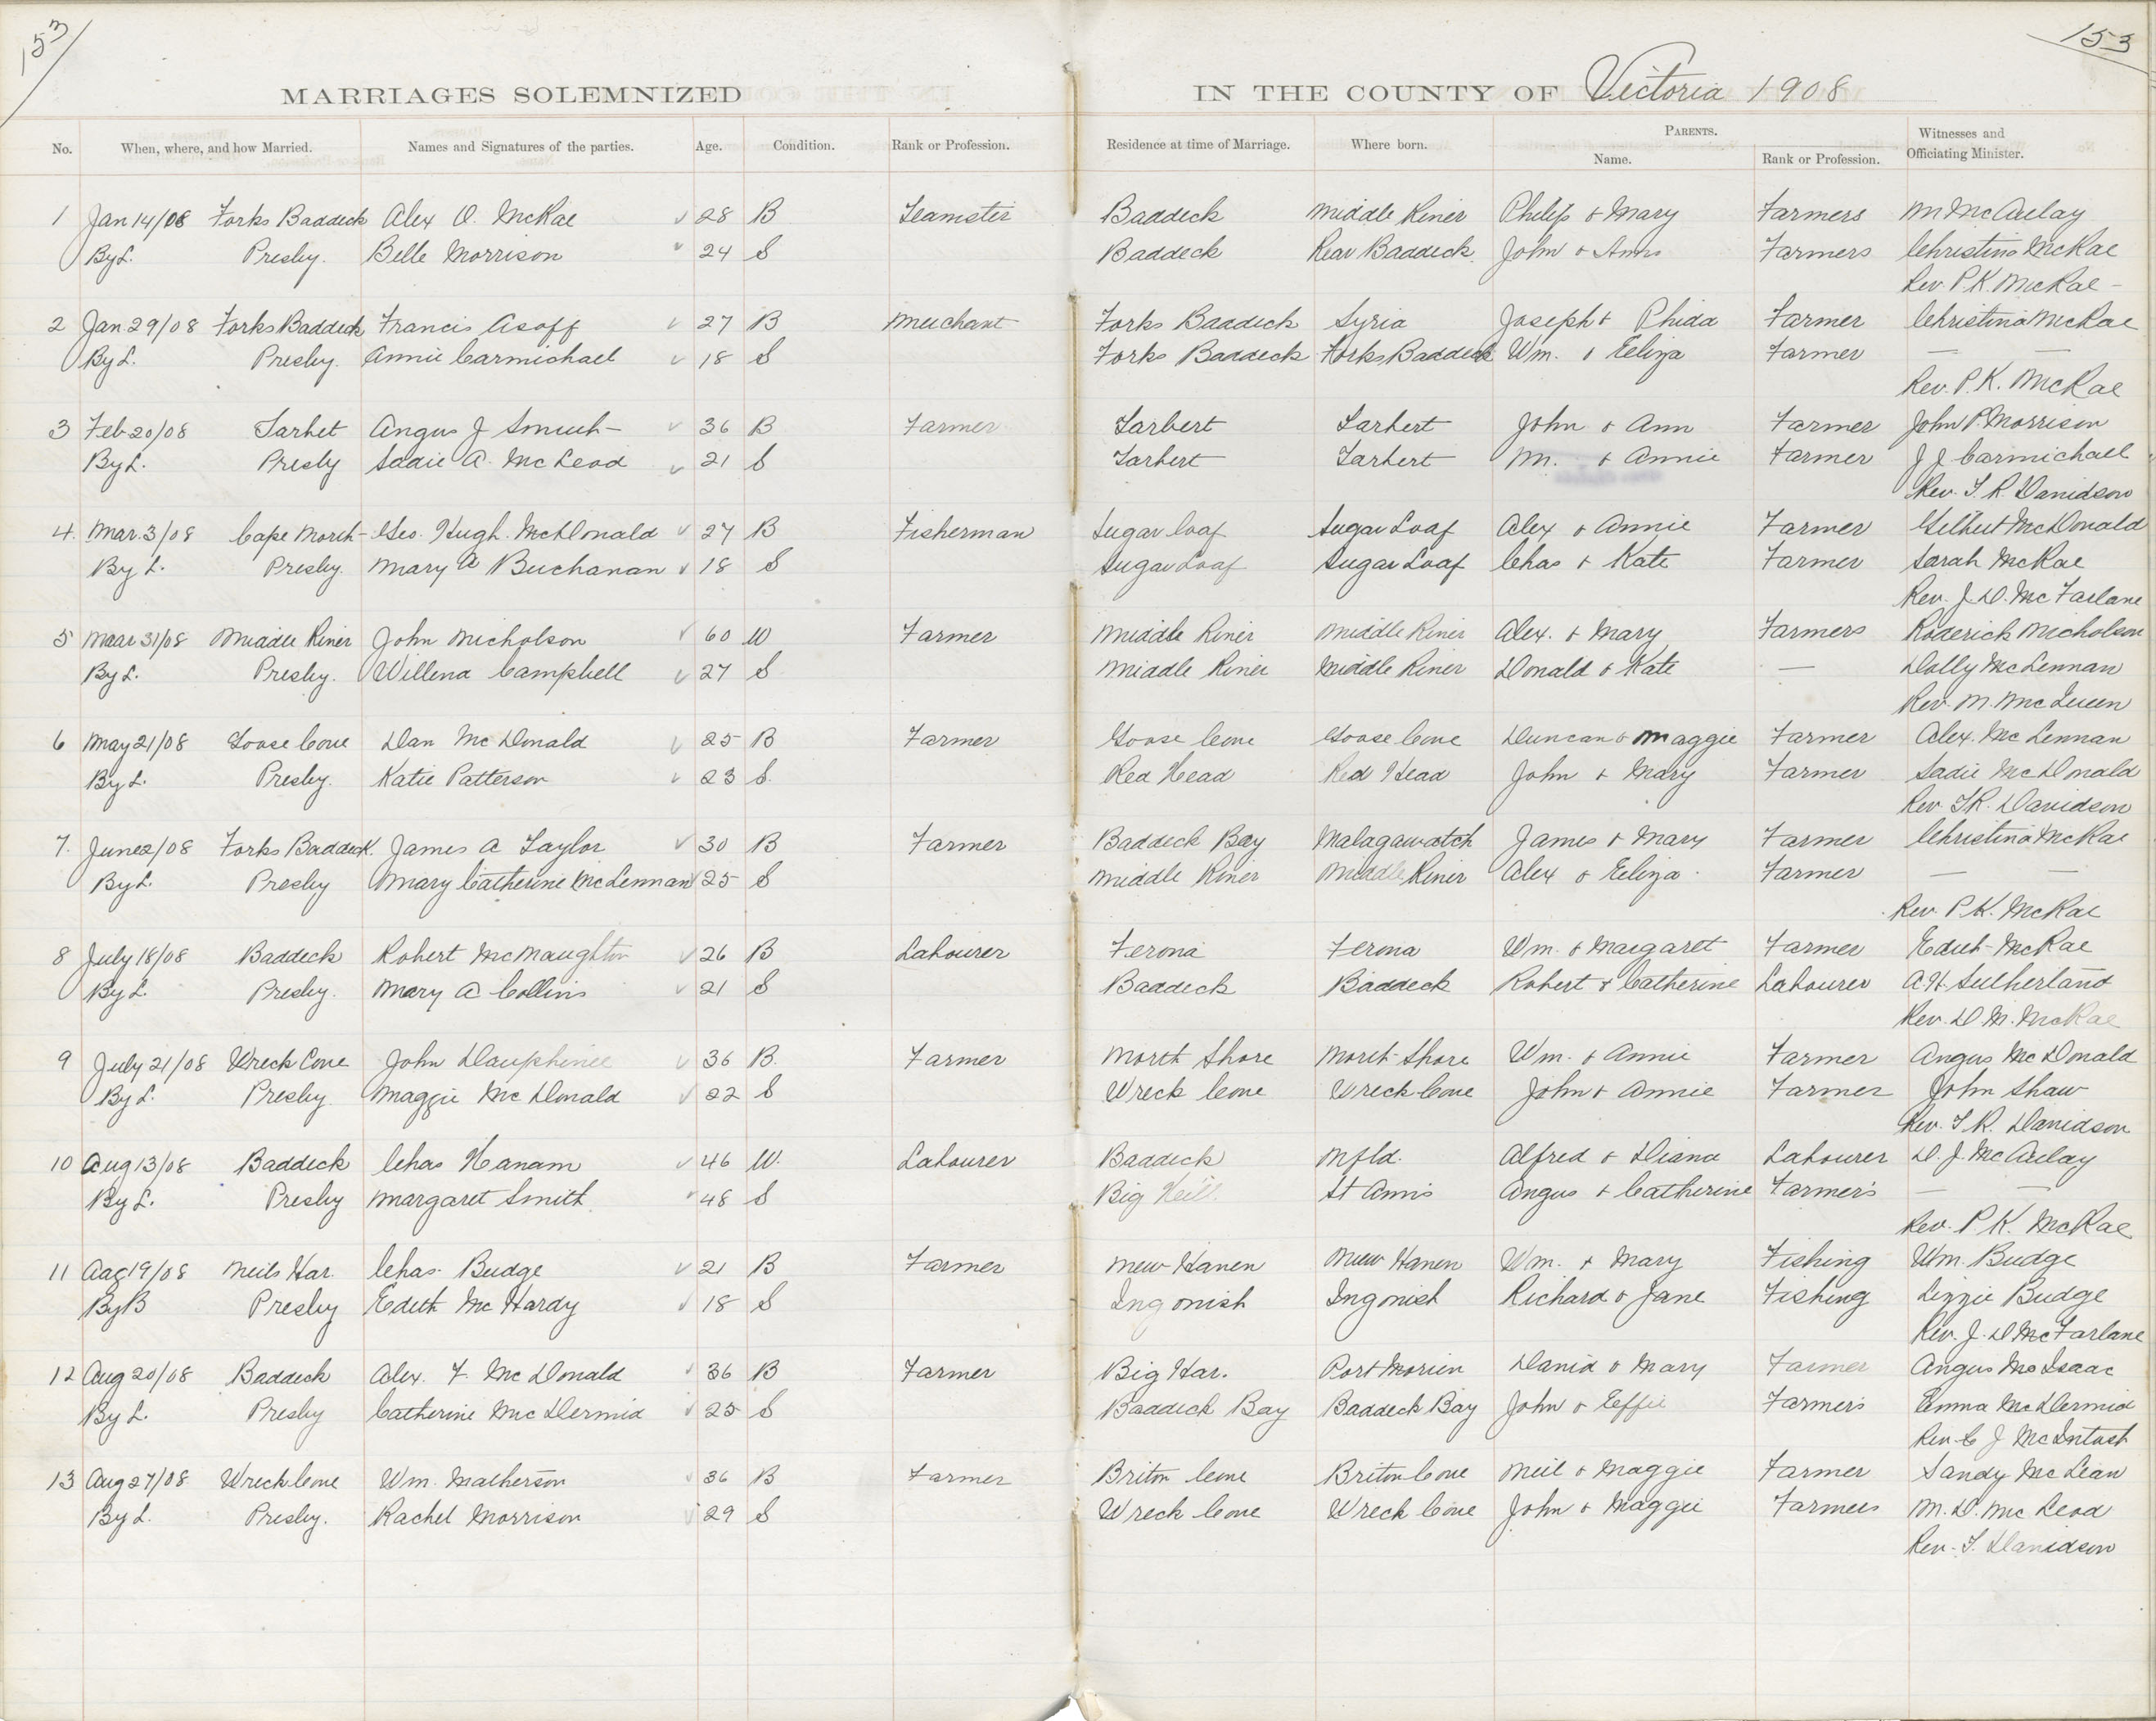 153
153
MARRIAGES SOLEMNIZED IN THE COUNTY OF Victoria 1908
No. When, where, and how Married. Names and Signatures of the parties. Age. Condition. Rank or Profession. Residence at time of Marriage. Where born. PARENTS. Name. Rank or Profession. Witnesses and Officiating Minister.
1 Jan 14/08 Forks Baddeck Alex O. McRae 28 B Teamster Baddeck Middle River Philip & Mary Farmers M McAulay
By L. Presby. Belle Morrison 24 S Baddeck Rear Baddeck John & Ann Farmers Christina McRae
Rev. P.K. McRae
2 Jan 29/08 Forks Baddeck Francis Asoff 27 B Merchant Forks Baddeck Syria Joseph & Phida Farmer Christina McRae
By L. Presby. Annie Carmichael 18 S Forks Baddeck Forks Baddeck Wm. & Eeliza Farmer — —
Rev. P.K. McRae
3 Feb 20/08 Tarbet Angus J Smith 36 B Farmer Tarbert Tarbert John & Ann Farmer John P. Morrison
By L. Presby Sadie A. McLeod 21 S Tarbert Tarbert M. & Annie Farmer J J Carmichael
Rev. T. R. Davidson
4. Mar. 3/08 Cape North Geo. Hugh. McDonald 27 B Fisherman Sugar Loaf Sugar Loaf Alex & Annie Farmer Gilbert McDonald
By L. Presby. Mary A Buchanan 18 S Sugar Loaf Sugar Loaf Chas & Kate Farmer Sarah McRae
Rev. J. D. McFarlane
5 Maar 31/08 Middle River John Nicholson 60 W Farmer Middle River Middle River Alex. & Mary Farmers Roderick Nicholson
By L. Presby. Willena Campbell 27 S Middle River Middle River Donald & Kate — Dolly McLennan
Rev. M. McQueen
6 May 21/08 Goose Cove Dan McDonald 25 B Farmer Goose Cove Goose Cove Duncan & Maggie Farmer Alex. McLennan
By L. Presby. Katie Patterson 23 S. Red Head Red Head John & Mary Farmer Sadie McDonald
Rev T.R. Davidson
7. June 2/08 Forks Baddeck. James A Taylor 30 B Farmer Baddeck Bay Malagawatch James & Mary Farmer Christina McRae
By L. Presby Mary Catherine McLennan 25 S Middle River Middle River Alex & Eeliza Farmer — —
Rev. P.K. McRae
8 July 18/08 Baddeck Robert McNaughton 26 B Labourer Ferona Ferona Wm. & Margaret Farmer Edith McRae
By L. Presby. Mary A Collins 21 S Baddeck Baddeck Robert & Catherine Labourer A.H. Sutherland
Rev. D M. McRae
9 July 21/08 Wreck Cove John Dauphinee 36 B. Farmer North Shore North Shore Wm. & Annie Farmer Angus McDonald
By L. Presby Maggie McDonald 22 S Wreck Cove Wreck Cove John & Annie Farmer John Shaw
Rev. T. R. Davidson
10 Aug 13/08 Baddeck Chas Hanam 46 W. Labourer Baddeck Nfld. Alfred & Diana Labourer D. J. McAulay
By L. Presby Margaret Smith 48 S Big Hill St Anns Angus & Catherine Farmer's — —
Rev. P. K. McRae
11 Aug 19/08 Neils Har. Chas. Budge 21 B Farmer New Haven New Haven Wm. & Mary Fishing Wm. Budge
By B Presby Edith McHardy 18 S Ingonish Ingonish Richard & Jane Fishing Lizzie Budge
Rev. J. D McFarlane
12 Aug 20/08 Baddeck Alex. F. McDonald 36 B Farmer Big Har. Port Morien David & Mary Farmer Angus McIsaac
By L. Presby Catherine McDermid 25 S Baddeck Bay Baddeck Bay John & Effie Farmers Emma McDermid
Rev. C J McIntosh
13 Aug 27/08 Wreck Cove Wm. Matherson 36 B Farmer Briton Cove Briton Cove Neil & Maggie Farmer Sandy McLean
By L. Presby. Rachel Morrison 29 S Wreck Cove Wreck Cove John & Maggie Farmers M. D. McLeod
Rev. T. Davidson